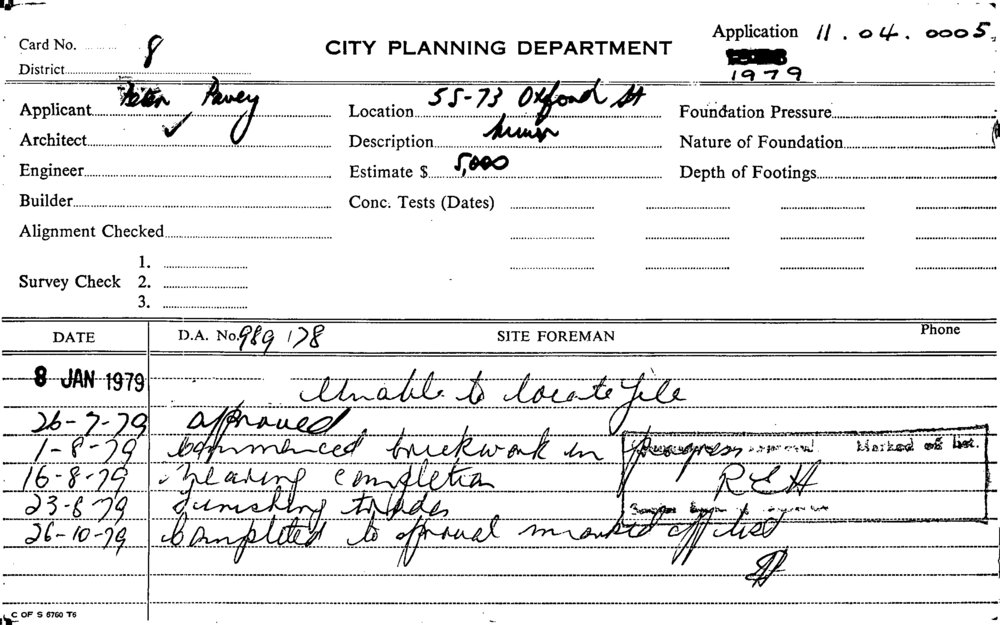 Card No. 8
District
CITY PLANNING DEPARTMENT
Application 11.04.0005.
1979
Applicant Peter Pavey
Architect
Engineer
Builder
Alignment Checked
Survey Check
1.
2.
3.
Location 55-73 Oxford St
Description
Estimate $ 5,000
Conc. Tests (Dates)
Foundation Pressure
Nature of Foundation
Depth of Footings
DATE D.A. No. 989 178 SITE FOREMAN Phone
8 JAN 1979 Unable to locate file
26-7-79 approved
1-8-79 Commenced brickwork in progress
16-8-79 Nearing completion
REH
23-8-79 Finishing trades
26-10-79 Completed to approval marked off list
C OF S 6760 T6